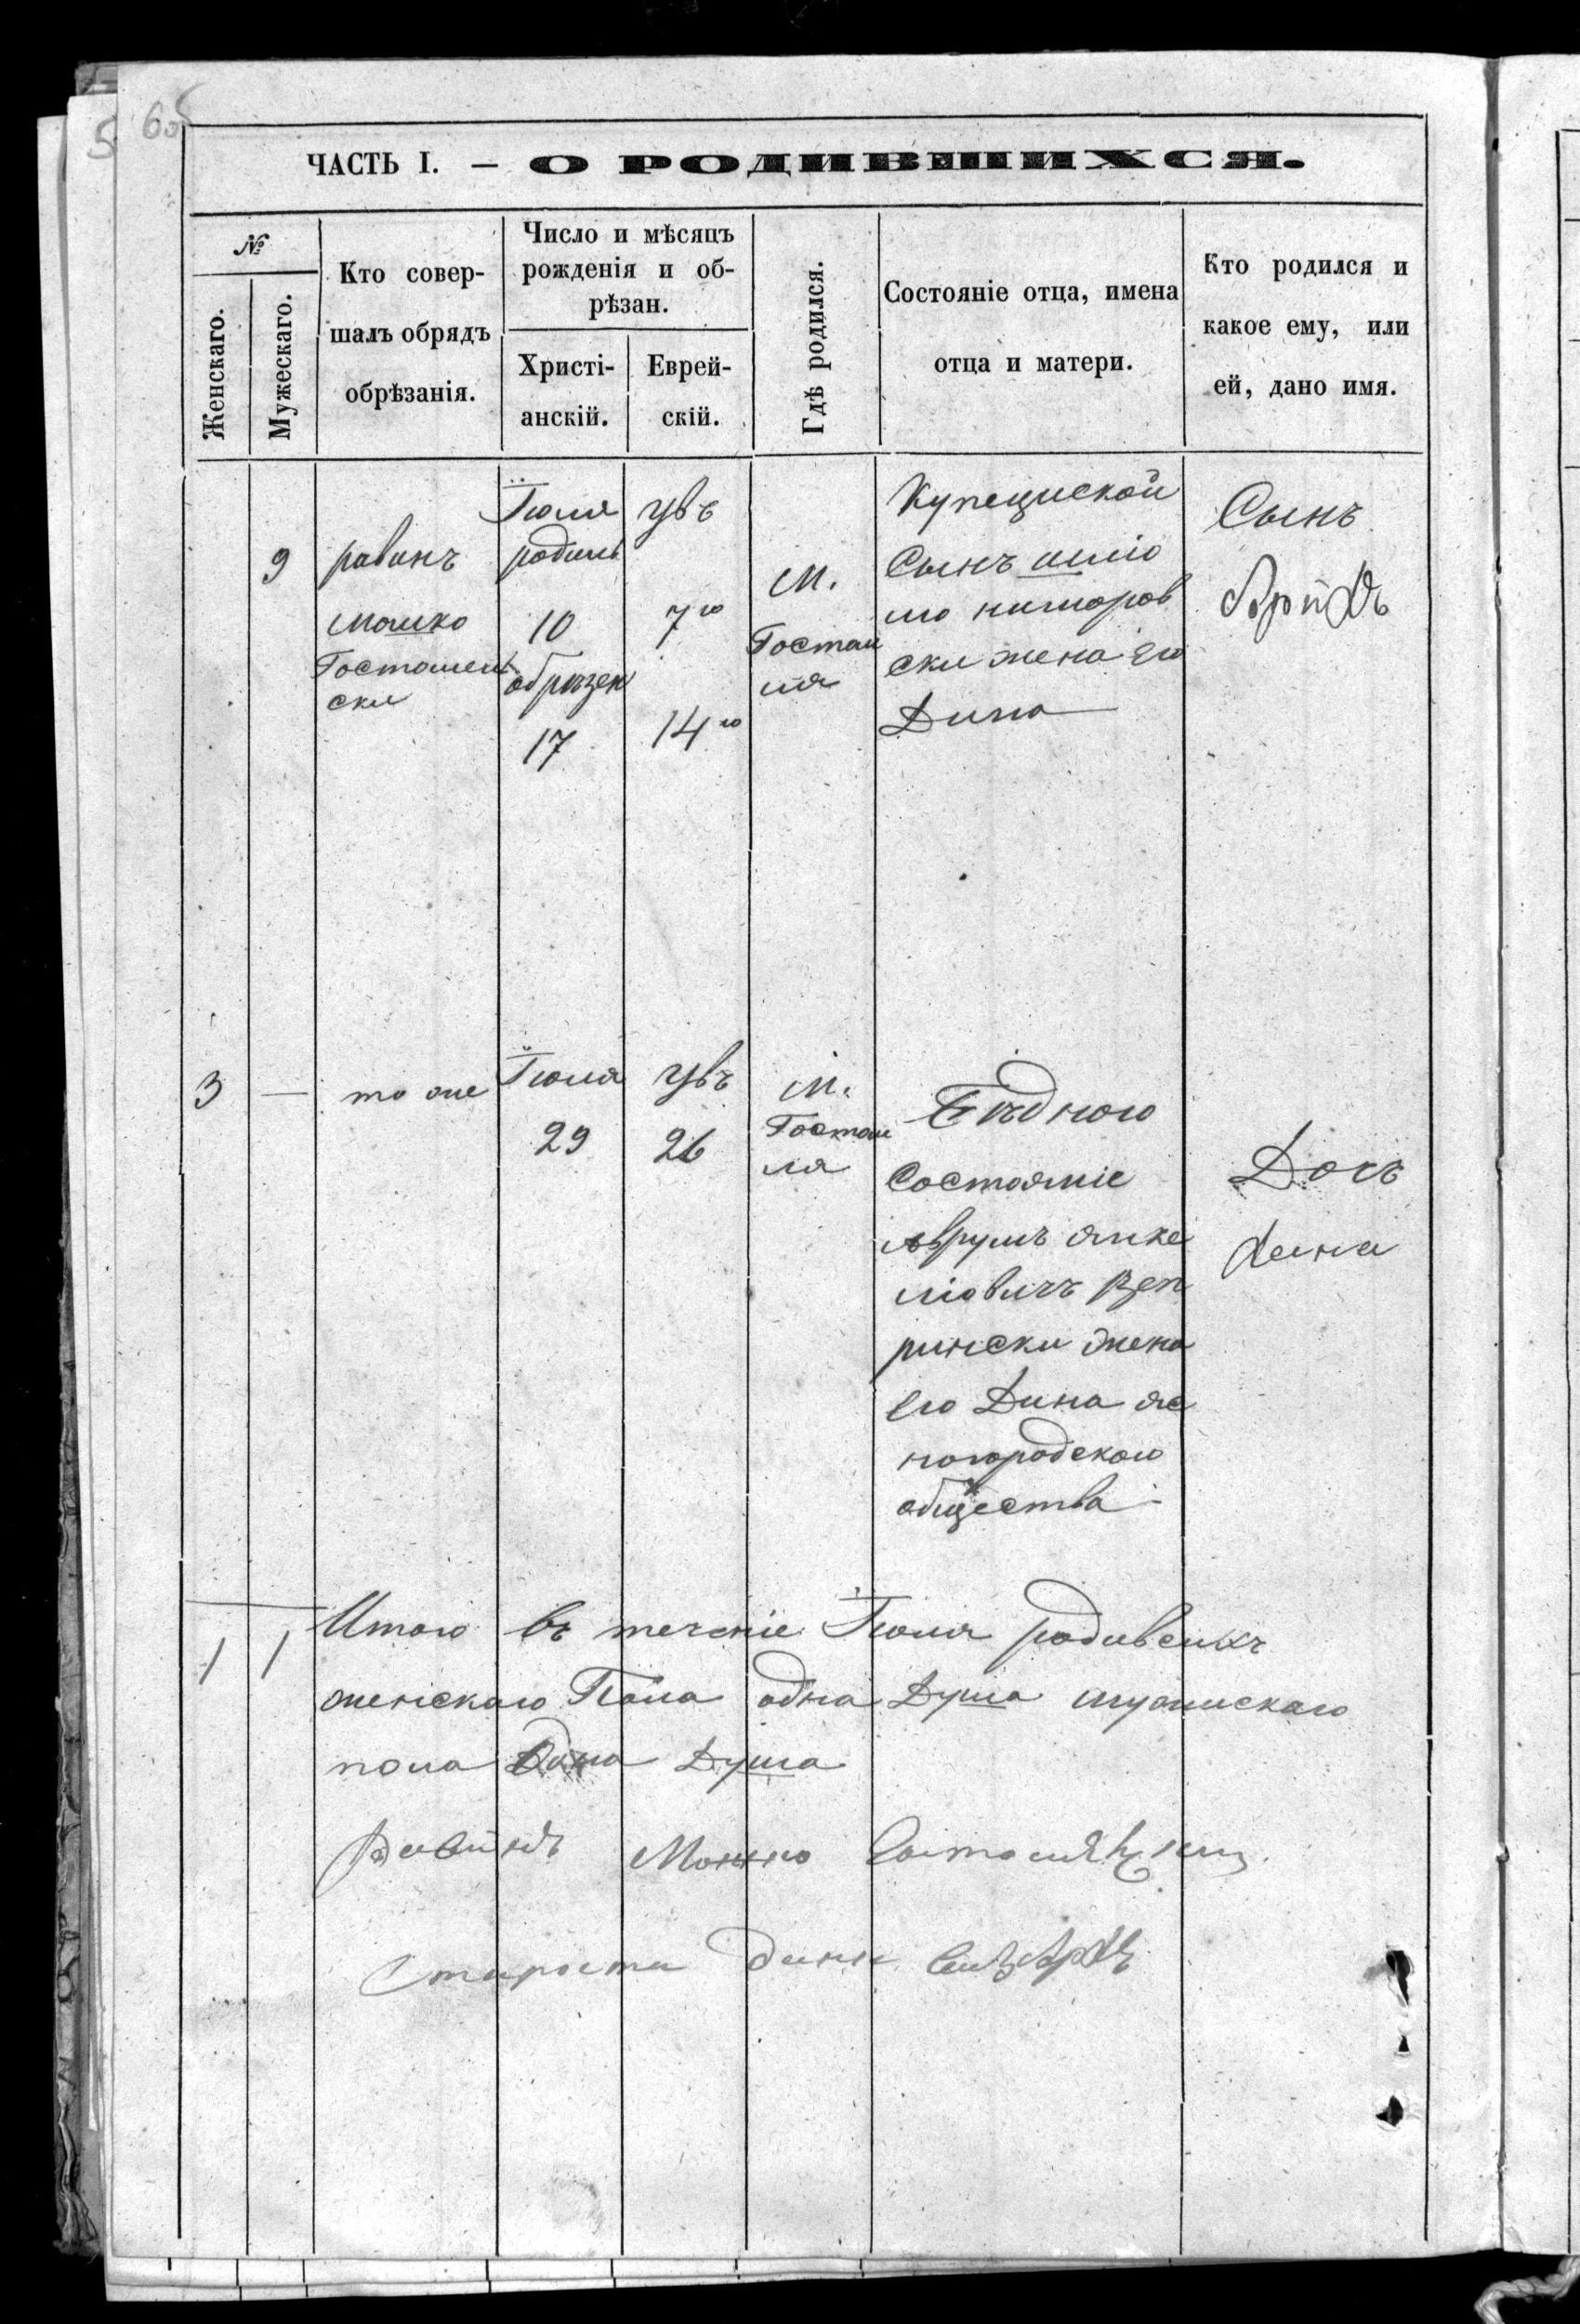 65
5
ЧАСТЬ I. — О РОДИВШИХСЯ.
№
Женскаго.
Мужескаго.
Кто совер-
шалъ обрядъ
обрѣзанія.
Число и мѣсяцъ
рожденія и об-
рѣзан.
Христі-
анскій.
Еврей-
скій.
Гдѣ родился.
Состояніе отца, имена
отца и матери.
Кто родился и
какое ему, или
ей, дано имя.
9
равинъ
мошко
Гостомель
ски
Іюля
родил
10
обрезен
17
7го
14го
М.
Гостом
ля
Купецской
Сынъ
жена его
Дина
Сынъ
3
—
то же
Іюля
29
26
М.
Гостом
ля
Бѣдного
Состояніе
Аврумъ Янке
ліовичъ
рински жена
его Дина яс
ногородского
общества
Дочъ
1
1
Итого въ теченіе Іюля
женскаго Пола одна Душа мужискаго
пола Одна Душа
Равинъ Мошко
Староста